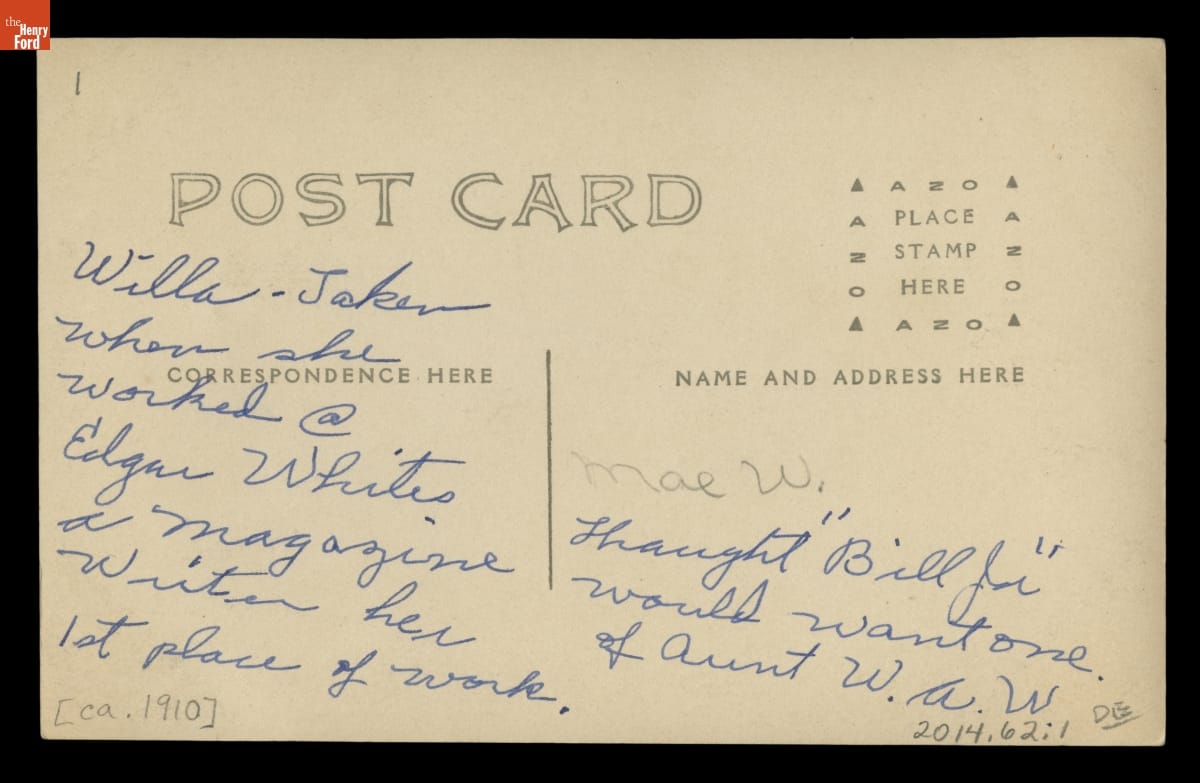 the
Henry
Ford
1
POST CARD
▲ AZO ▲
A PLACE A
Z STAMP Z
O HERE O
▲ AZO ▲
Willa - Taken
when she
CORRESPONDENCE HERE
worked @
Edgar Whites
a magazine
Writer her
1st place of work.
[ca. 1910]
NAME AND ADDRESS HERE
Mae W.
Thaught "Bill Jr"
would want one.
of Aunt W. A. W
2014.62.1